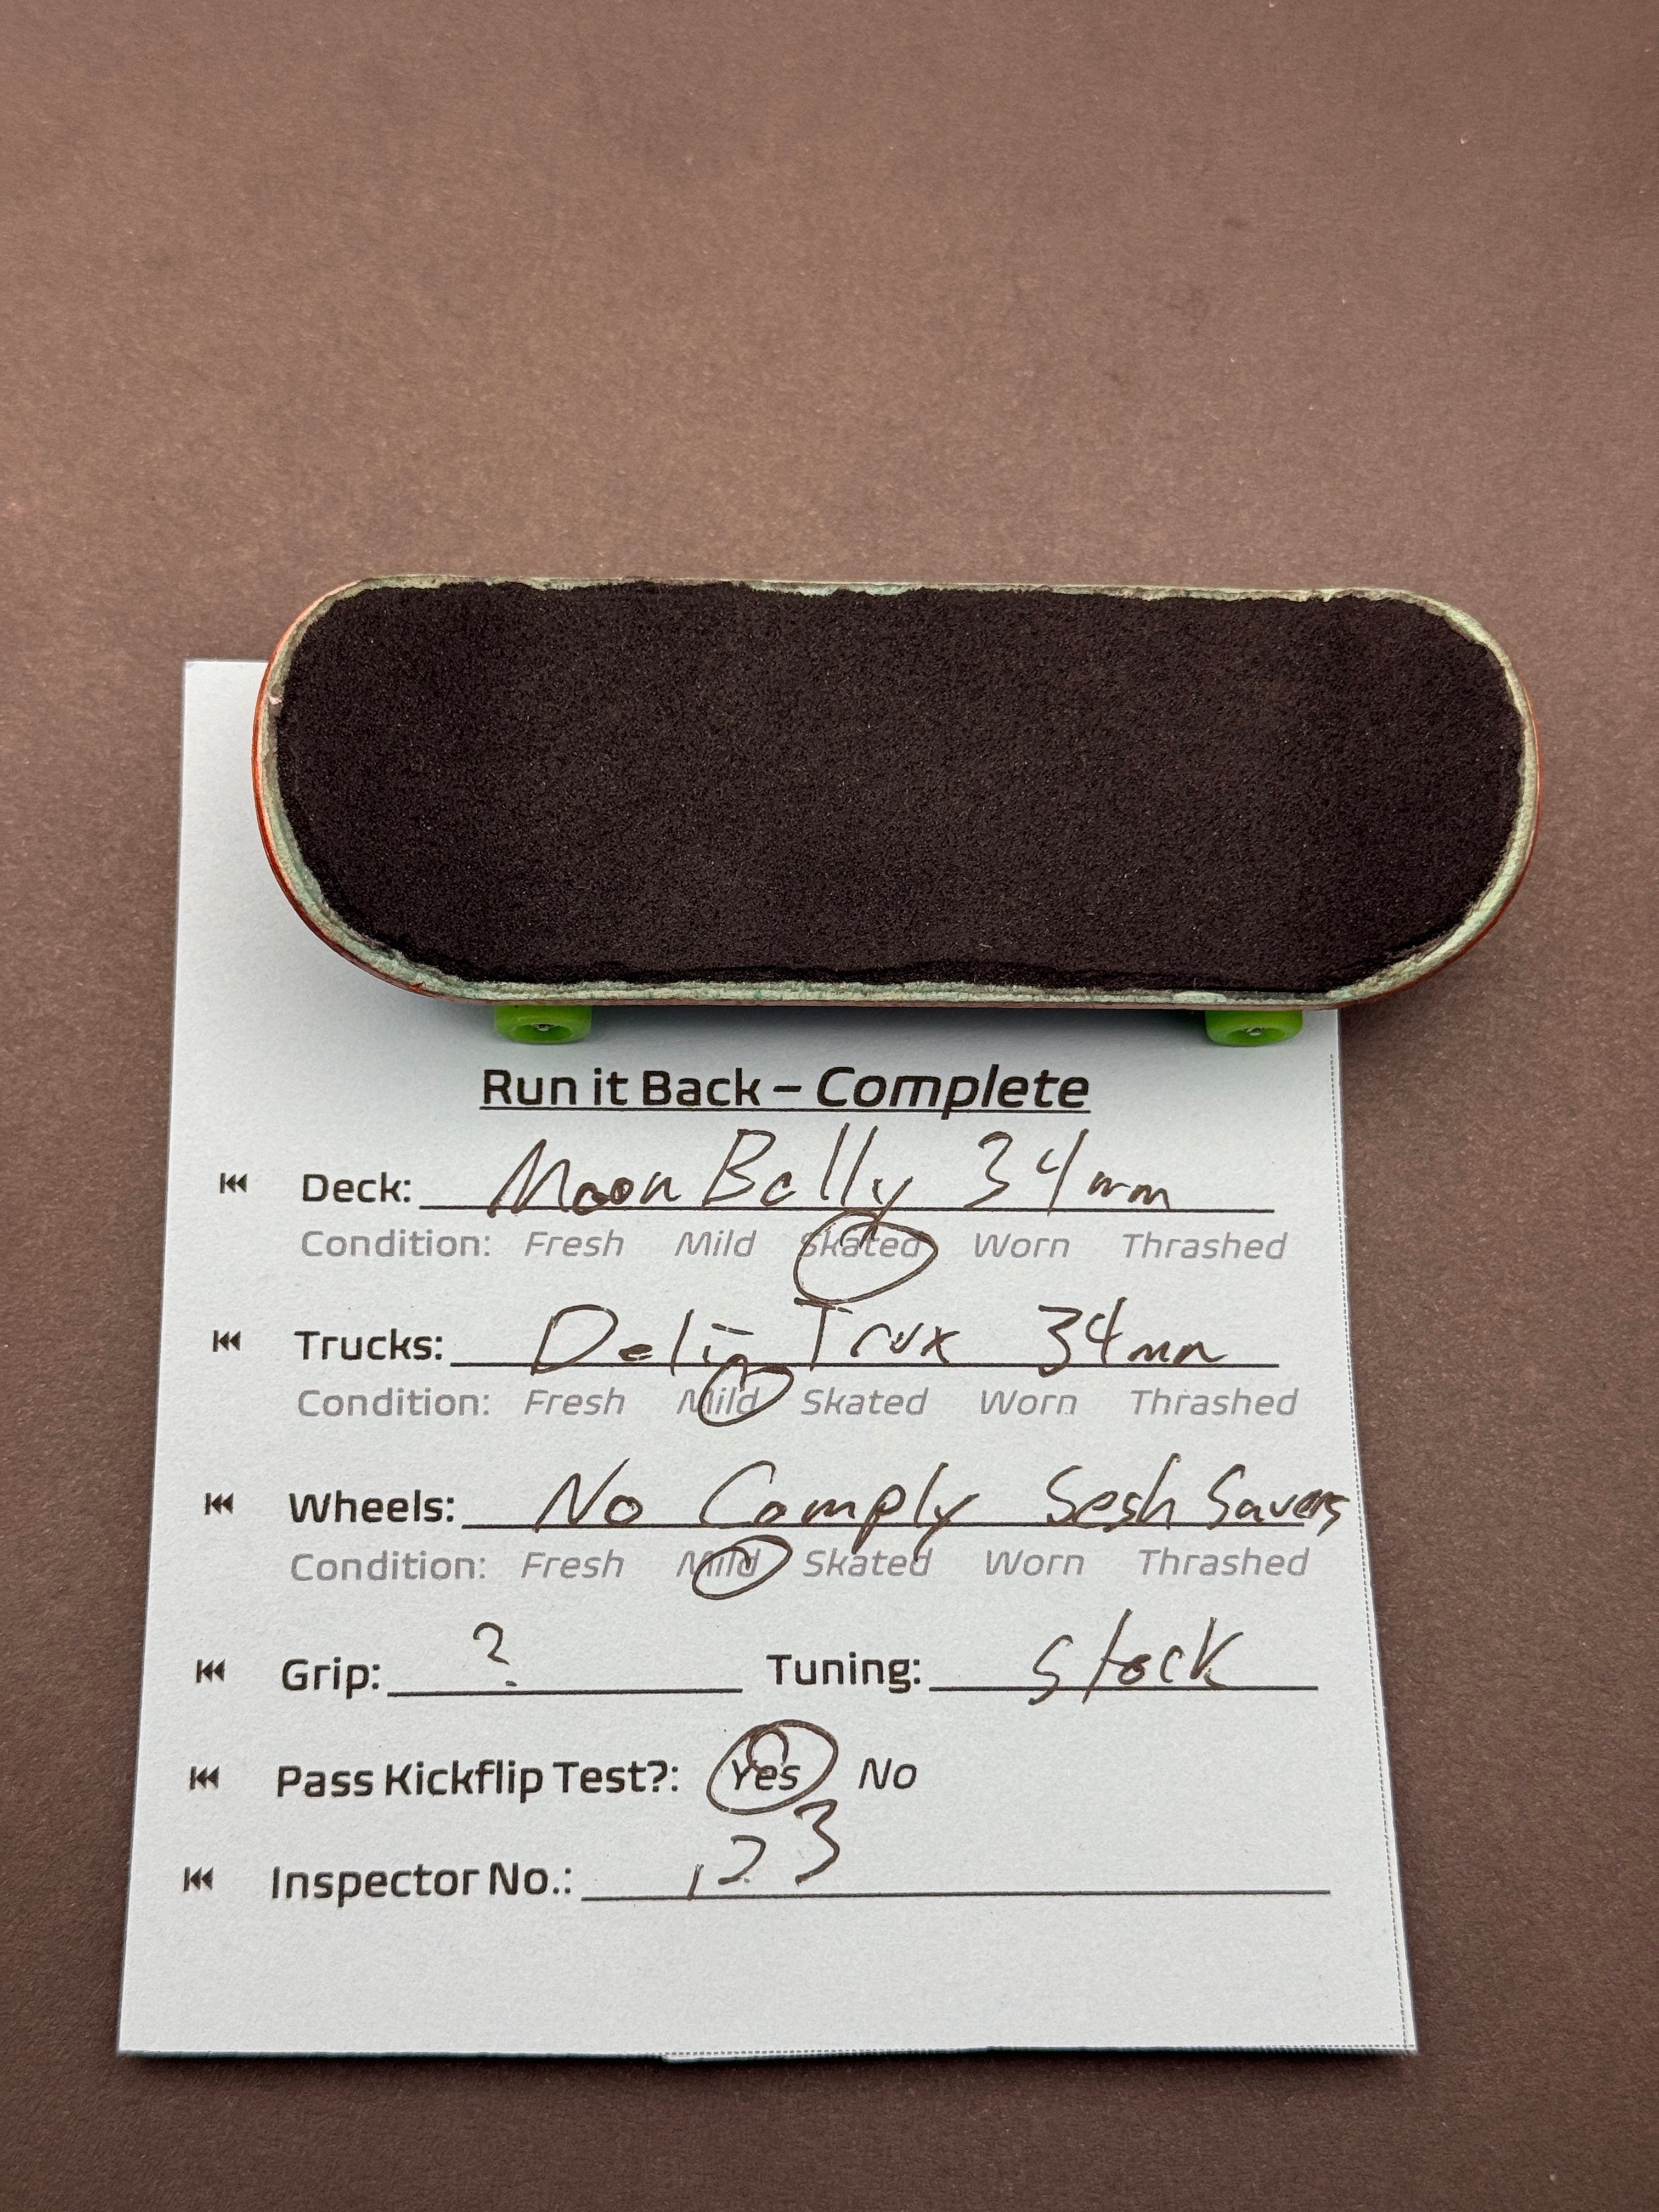 Run it Back – Complete
Deck: Moon Belly 34mm
Condition: Fresh Mild Skated Worn Thrashed
Trucks: Deli Trux 34mm
Condition: Fresh Mild Skated Worn Thrashed
Wheels: No Comply Sesh Savers
Condition: Fresh Mild Skated Worn Thrashed
Grip: ? Tuning: Stock
Pass Kickflip Test?: Yes No
Inspector No.: 123